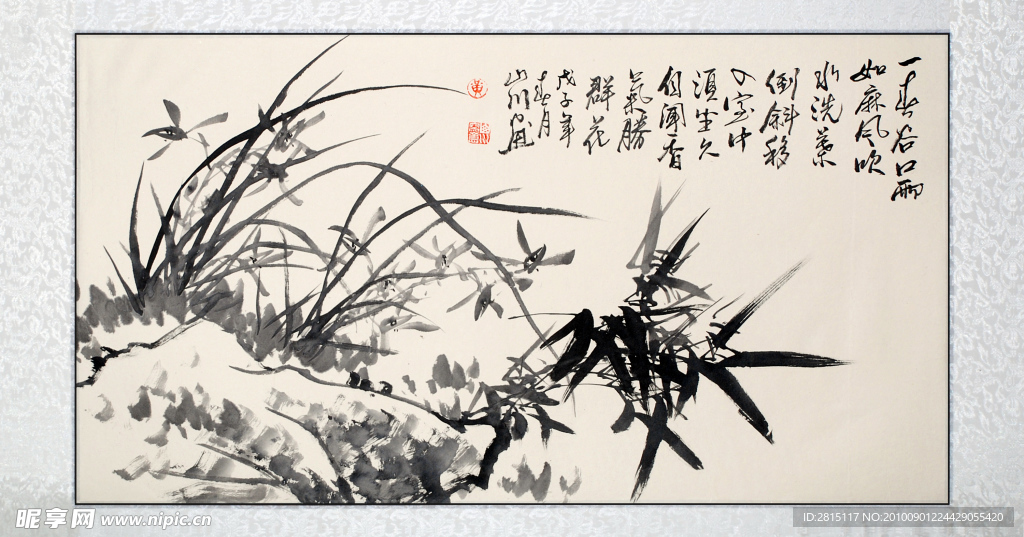 一春谷口雨
如麻風吹
水洗葉
倒斜移
入室中
須坐久
自聞香
氣勝
群花
戊子年
春月
山川画
昵享网 www.nipic.cn
ID:2815117 NO:20100901224429055420